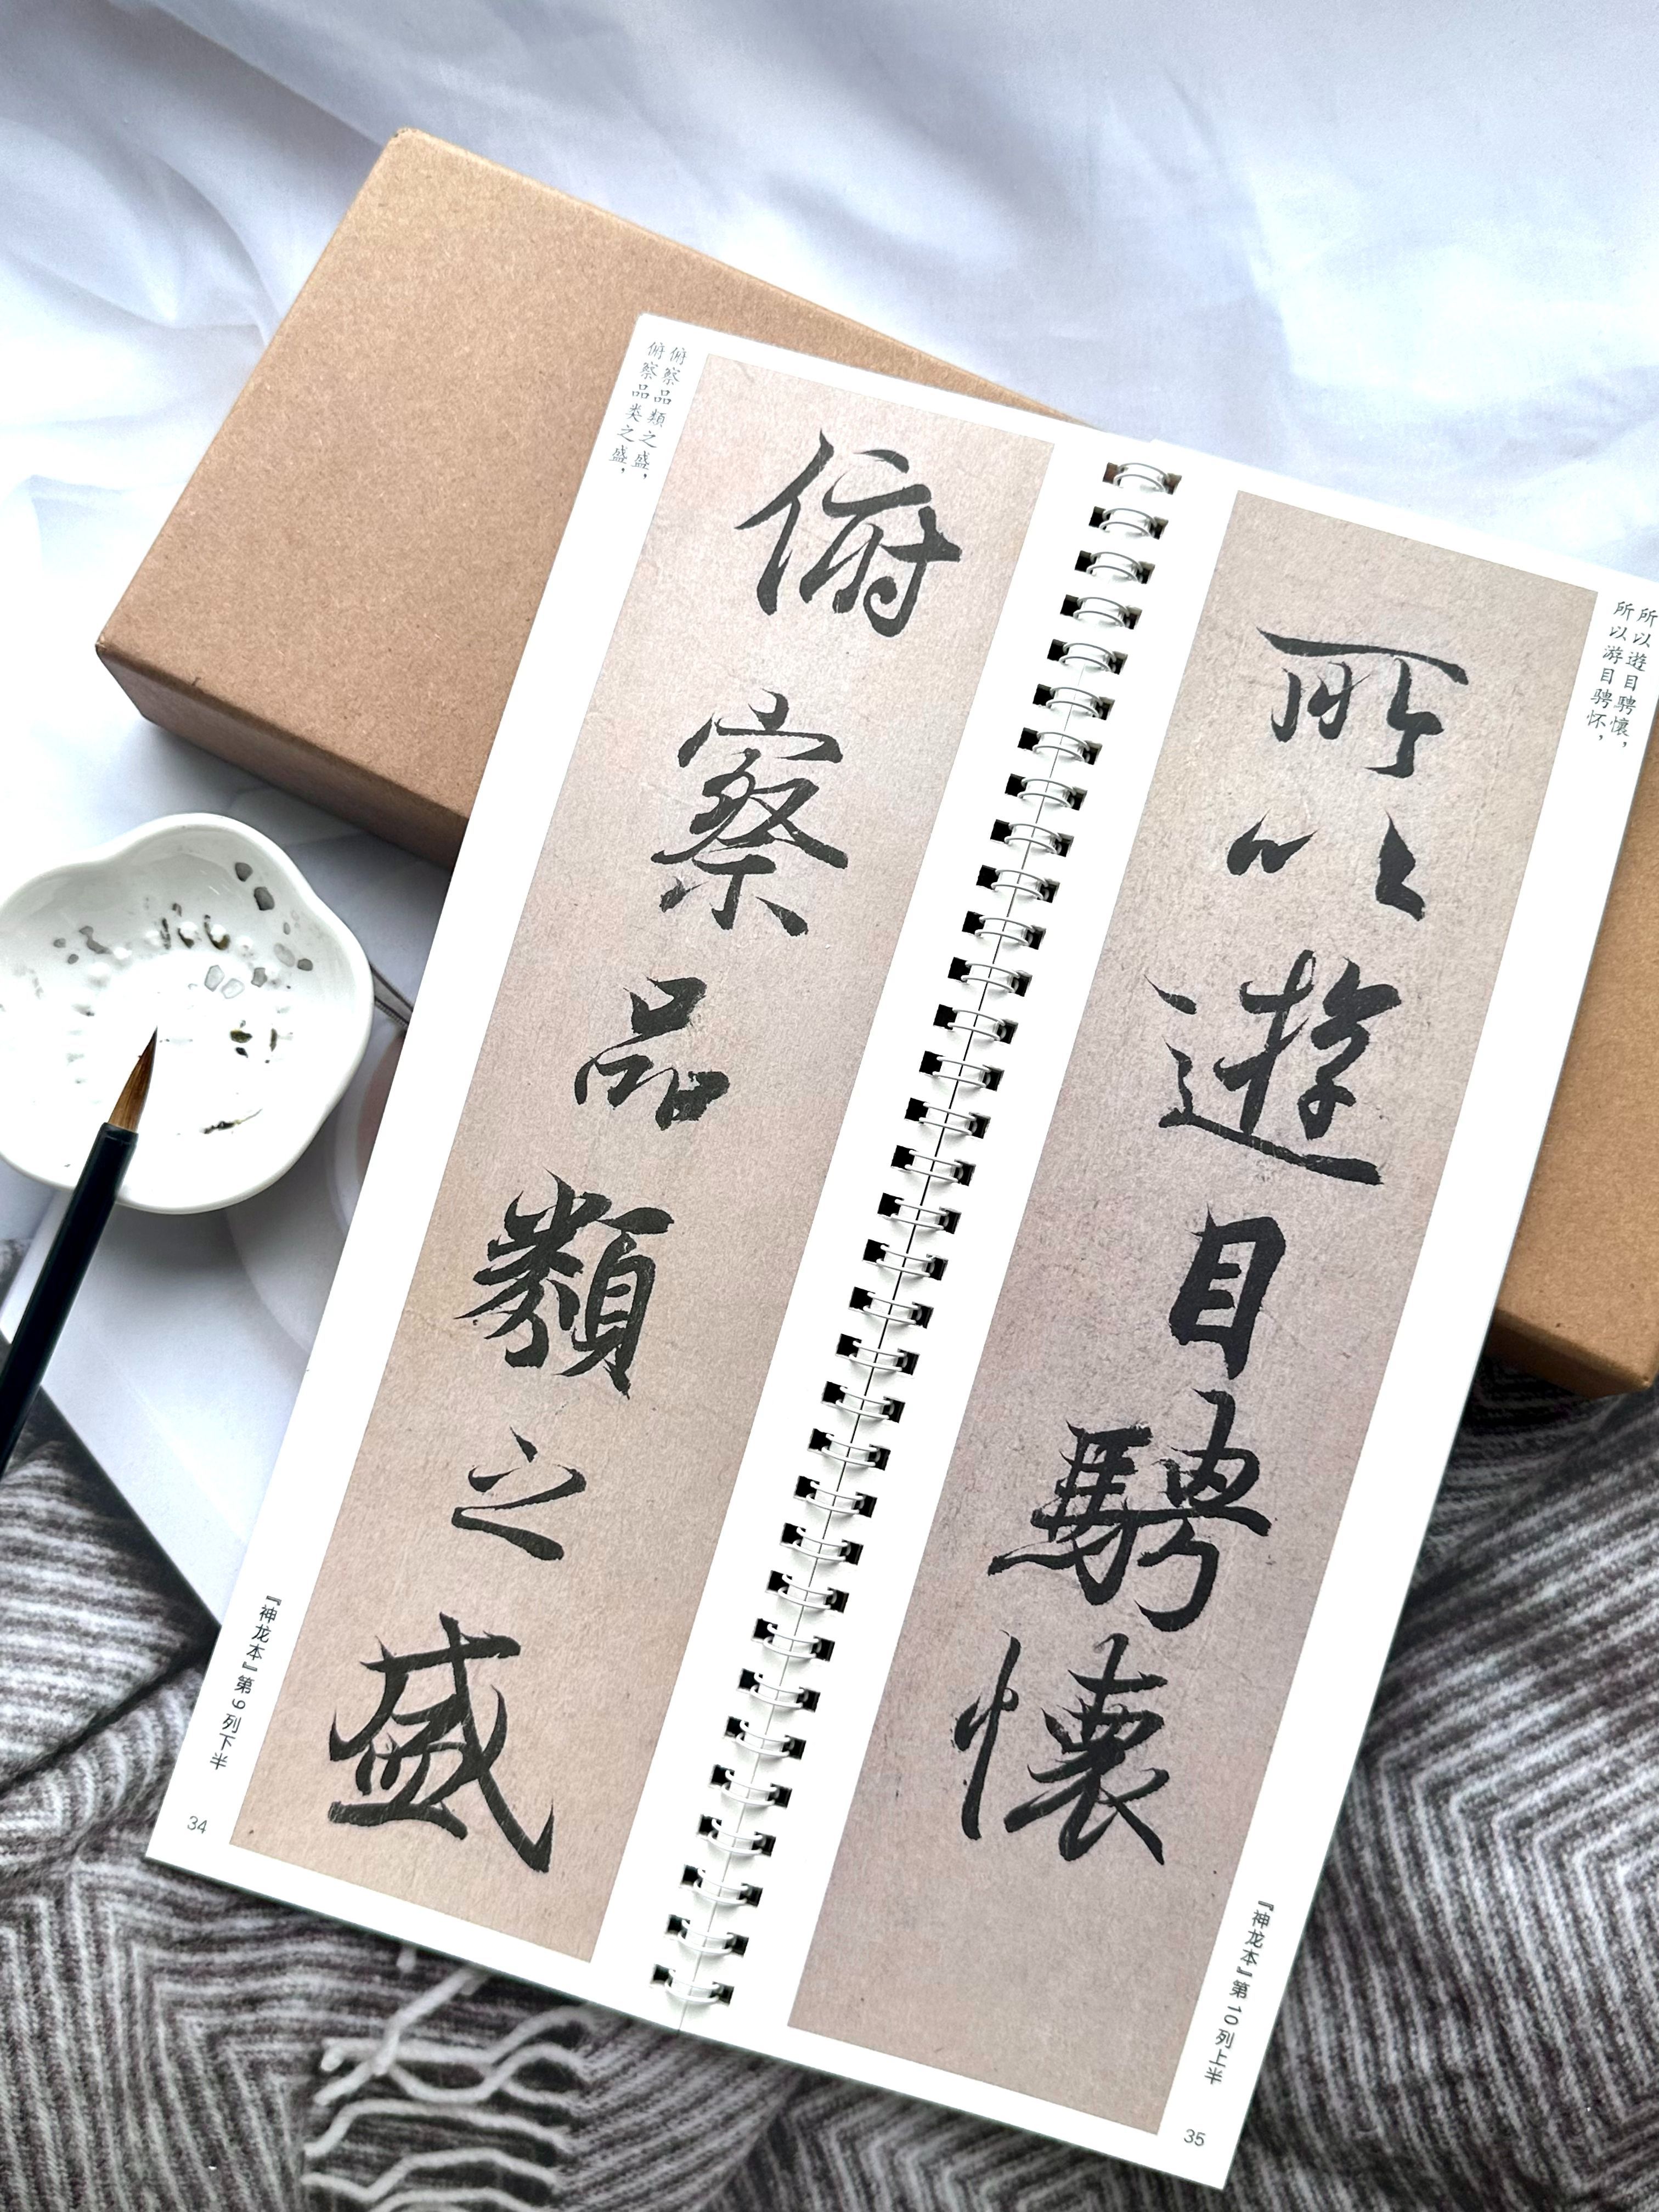 俯察品類之盛，
俯察品类之盛，
俯察品類之盛
『神龙本』第9列下半
34
所以遊目騁懷，
所以游目骋怀，
所以遊目騁懷
『神龙本』第10列上半
35